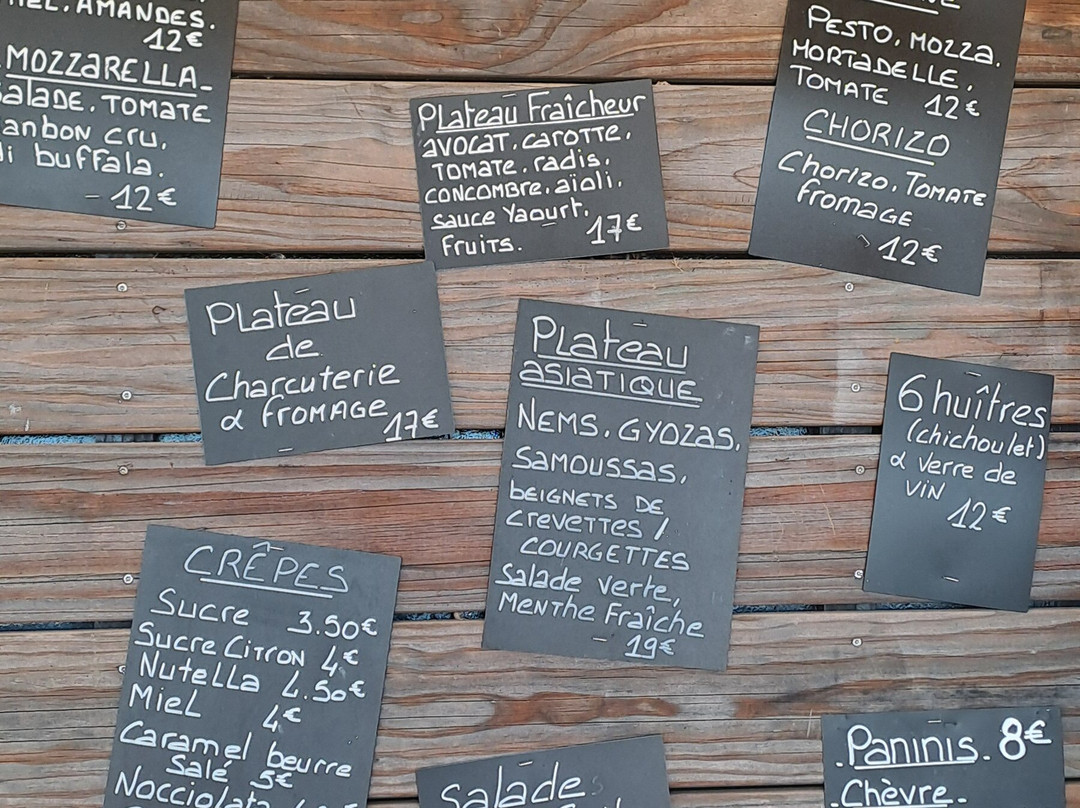 AMANDES.
12€
MOZZARELLA
SALADE, TOMATE
CRU,
di buffala.
- 12€
Plateau Fraîcheur
avocat, carotte,
tomate, radis,
concombre, aïoli,
sauce yaourt,
fruits. 17€
Pesto, mozza,
mortadelle,
tomate 12€
CHORIZO
Chorizo, Tomate
fromage
12€
Plateau
de
Charcuterie
& fromage 17€
Plateau
asiatique
Nems, gyozas,
samoussas,
beignets de
crevettes /
courgettes
salade verte,
menthe fraîche
19€
6 huîtres
(chichoulet)
& verre de
vin 12€
CRÊPES
Sucre 3.50€
Sucre Citron 4€
Nutella 4.50€
Miel 4€
Caramel beurre
salé 5€
Nocciolata
Salades
Paninis. 8€
. Chèvre.